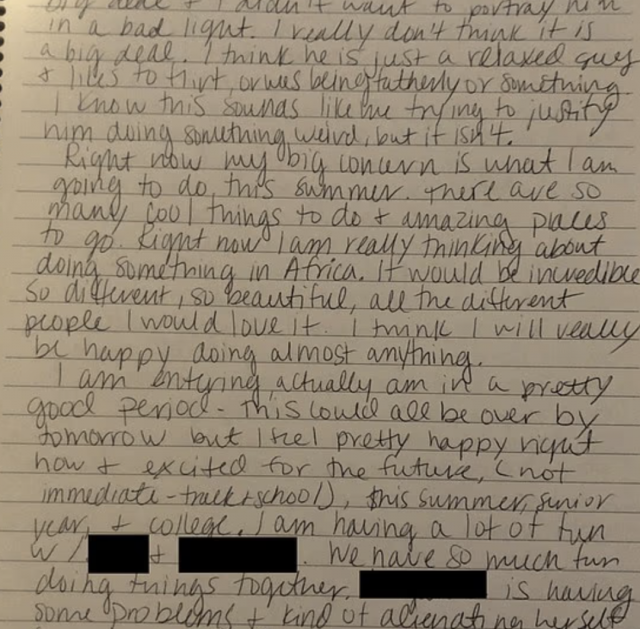 big deal + I didn't want to portray him
in a bad light. I really don't think it is
a big deal. I think he is just a relaxed guy
+ likes to flirt, or was being fatherly or something.
I know this sounds like me trying to justify
him doing something weird, but it isn't.
Right now my big concern is what I am
going to do this summer. There are so
many cool things to do + amazing places
to go. Right now I am really thinking about
doing something in Africa. It would be incredible
so different, so beautiful, all the different
people I would love it. I think I will really
be happy doing almost anything.
I am entering, actually am in a pretty
good period - this could all be over by
tomorrow but I feel pretty happy right
now + excited for the future, (not
immediate - track + school), this summer, junior
year, + college. I am having a lot of fun
w/ + . We have so much fun
doing things together. is having
some problems + kind of alienating herself